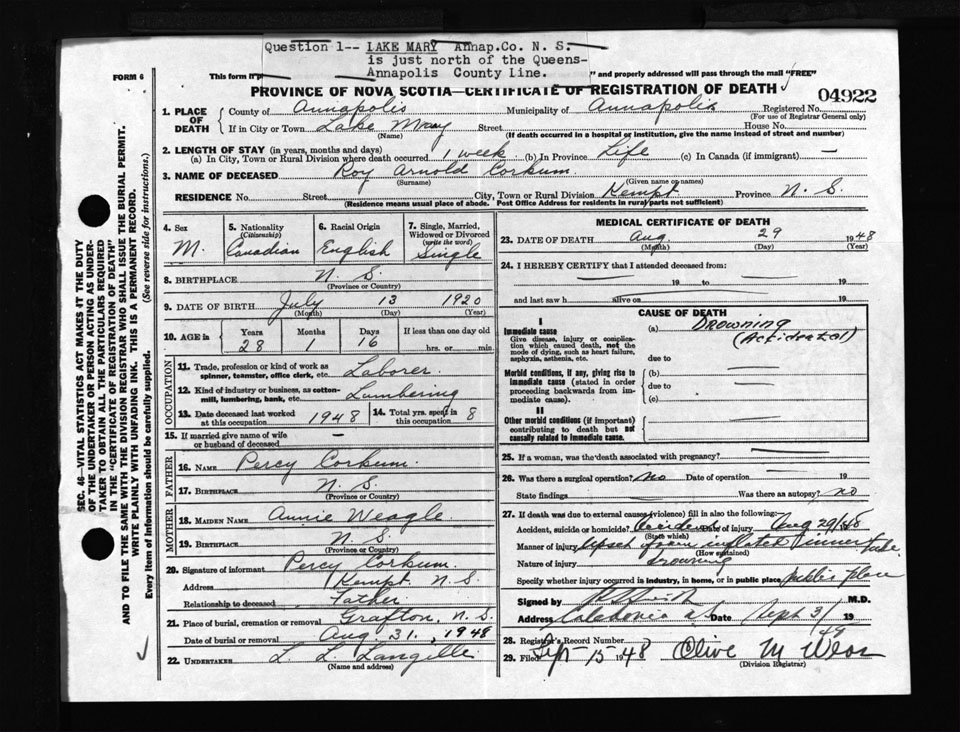 Question 1-- LAKE MARY Annap.Co. N. S.
is just north of the Queens-
Annapolis County Line.
FORM 6
This form if
" and properly addressed will pass through the mail "FREE"
PROVINCE OF NOVA SCOTIA—CERTIFICATE OF REGISTRATION OF DEATH
04922
1. PLACE OF DEATH
County of Annapolis Municipality of Annapolis Registered No.
(For use of Registrar General only)
If in City or Town Lake Mary Street House No.
(Name) (If death occurred in a hospital or institution, give the name instead of street and number)
2. LENGTH OF STAY (in years, months and days)
(a) In City, Town or Rural Division where death occurred 1 week (b) In Province Life (c) In Canada (if immigrant) —
3. NAME OF DECEASED Roy Arnold Corkum
(Surname) (Given name or names)
RESIDENCE No. Street City, Town or Rural Division Kempt Province N. S.
(Residence means usual place of abode. Post Office Address for residents in rural parts not sufficient)
4. Sex
M.
5. Nationality
(Citizenship)
Canadian
6. Racial Origin
English
7. Single, Married,
Widowed or Divorced
(write the word)
Single
8. BIRTHPLACE N. S.
(Province or Country)
9. DATE OF BIRTH July 13 1920
(Month) (Day) (Year)
10. AGE in
Years Months Days If less than one day old
28 1 16 hrs. or min.
OCCUPATION
11. Trade, profession or kind of work as
spinner, teamster, office clerk, etc. Laborer
12. Kind of industry or business, as cotton-
mill, lumbering, bank, etc. Lumbering
13. Date deceased last worked
at this occupation 1948
14. Total yrs. spent in
this occupation 8
15. If married give name of wife
or husband of deceased —
FATHER
16. NAME Percy Corkum
17. BIRTHPLACE N. S.
(Province or Country)
MOTHER
18. MAIDEN NAME Annie Weagle
19. BIRTHPLACE N. S.
(Province or Country)
20. Signature of informant Percy Corkum
Address Kempt N. S.
Relationship to deceased Father
21. Place of burial, cremation or removal Grafton, N.S.
Date of burial or removal Aug 31, 1948
22. UNDERTAKER L. L. Langille
(Name and address)
MEDICAL CERTIFICATE OF DEATH
23. DATE OF DEATH Aug. 29 1948
(Month) (Day) (Year)
24. I HEREBY CERTIFY that I attended deceased from:
19 to 19
and last saw h alive on 19
CAUSE OF DEATH
I
Immediate cause
Give disease, injury or complica-
tion which caused death, not the
mode of dying, such as heart failure,
asphyxia, asthenia, etc.
(a) Drowning
(Accidental)
due to
Morbid conditions, if any, giving rise to
immediate cause (stated in order
proceeding backwards from im-
mediate cause).
(b)
due to
(c)
II
Other morbid conditions (if important)
contributing to death but not
causally related to immediate cause.
25. If a woman, was the death associated with pregnancy?
26. Was there a surgical operation? no Date of operation 19
State findings Was there an autopsy? no
27. If death was due to external causes (violence) fill in also the following:
Accident, suicide or homicide? Accident Date of injury Aug 29/48
(State which)
Manner of injury Upset from inflated inner tube
(How sustained)
Nature of injury drowning
Specify whether injury occurred in industry, in home, or in public place public place
Signed by M.D.
Address Caledonia N.S. Date Sept 3/ 19
48
28. Registrar's Record Number
29. Filed Sept 15 1948 Olive M
(Division Registrar)
SEC. 46—VITAL STATISTICS ACT MAKES AT THE DUTY
OF THE UNDERTAKER OR PERSON ACTING AS UNDER-
TAKER TO OBTAIN ALL THE PARTICULARS REQUIRED
IN THE "CERTIFICATE OF REGISTRATION OF DEATH"
AND TO FILE THE SAME WITH THE DIVISION REGISTRAR WHO SHALL ISSUE THE BURIAL PERMIT.
WRITE PLAINLY WITH UNFADING INK. THIS IS A PERMANENT RECORD.
Every item of information should be carefully supplied. (See reverse side for instructions.)